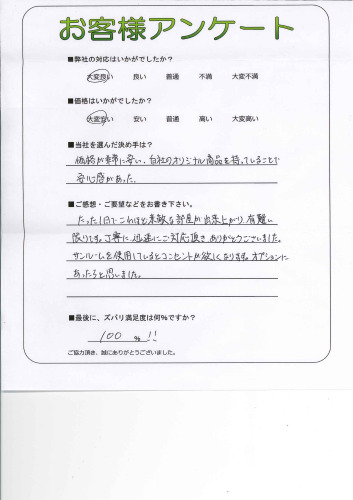 お客様アンケート
■弊社の対応はいかがでしたか?
大変良い 良い 普通 不満 大変不満
■価格はいかがでしたか?
大変安い 安い 普通 高い 大変高い
■当社を選んだ決め手は?
価格が非常に安い、自社のオリジナル商品を持っていることで
安心感があった。
■ご感想・ご要望などをお書き下さい。
たった1日でこれほど素敵な部屋が出来上がり、有難い
限りです。丁寧に迅速にご対応頂きありがとうございました。
サンルームを使用しているとコンセントが欲しくなります。オプションに
あったらと思いました。
■最後に、ズバリ満足度は何%ですか?
100 %!!
ご協力頂き、誠にありがとうございました。